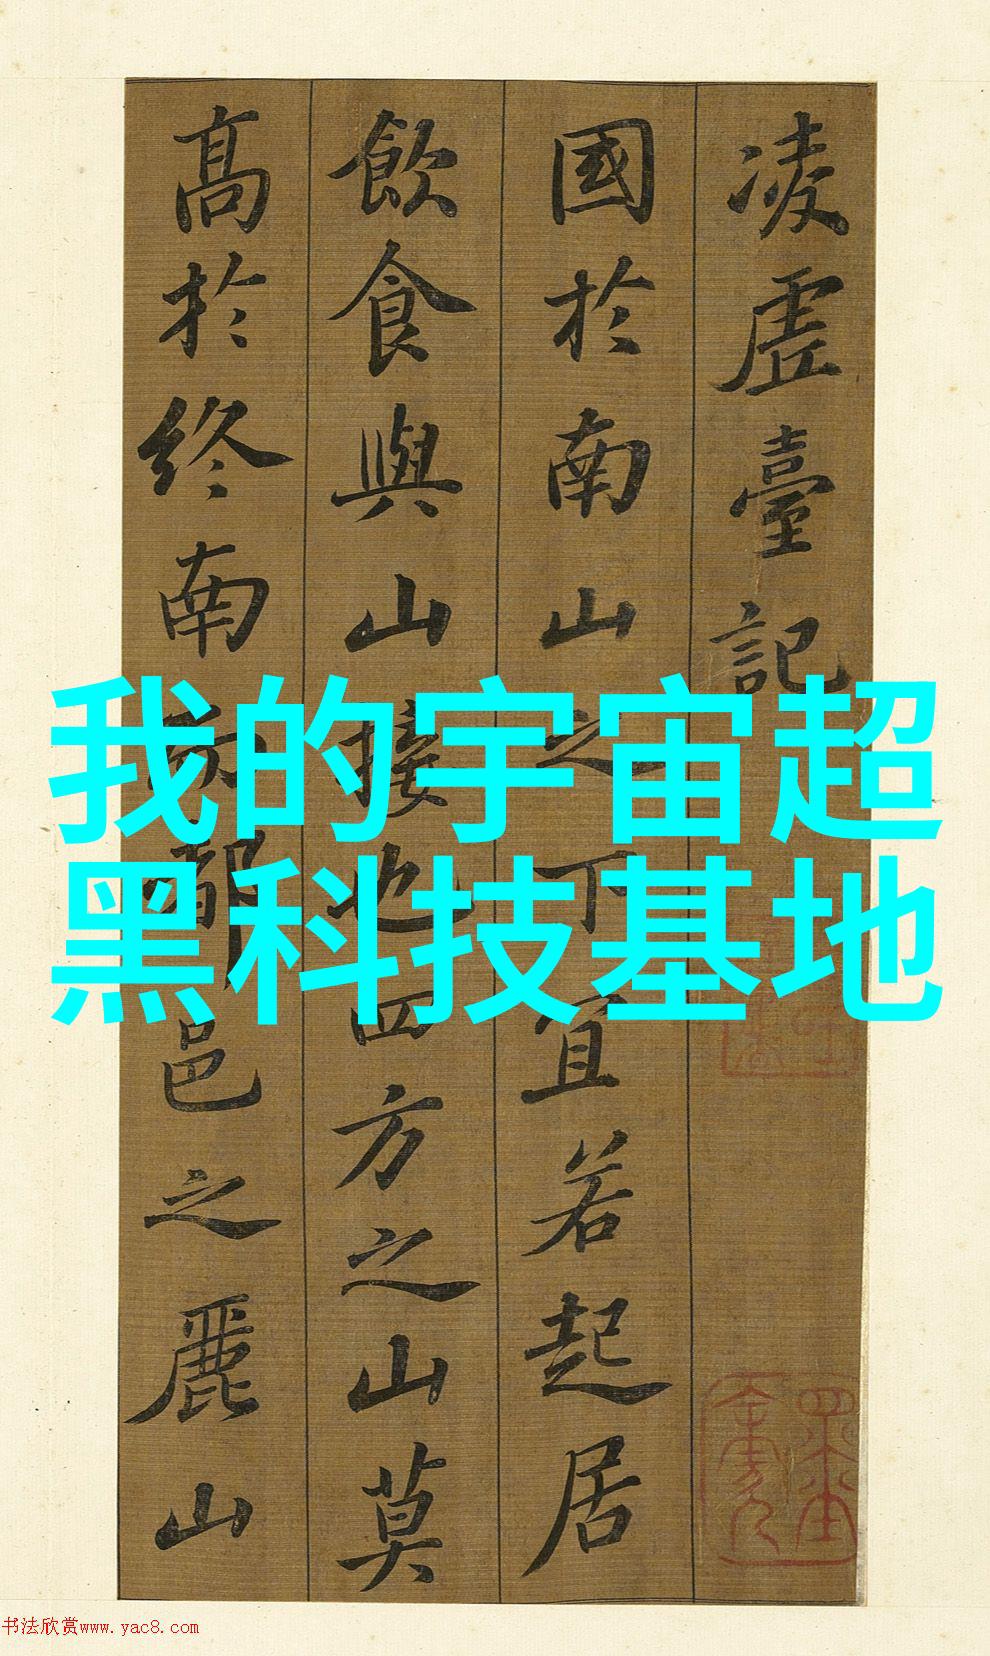 凌虛臺記
國於南山之下宜若起居
飲食與山接也四方之山莫
高於終南而都邑之麗山
我的宇宙超
黑科技基地
书法欣赏www.yac8.com